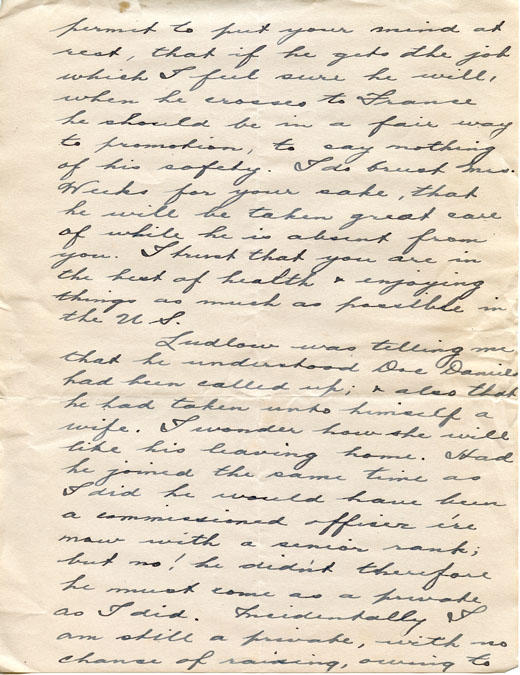 permit to put your mind at
rest, that if he gets the job
which I feel sure he will,
when he crosses to France
he should be in a fair way
to promotion, to say nothing
of his safety. I do trust Mrs.
Weeks for your sake, that
he will be taken great care
of while he is absent from
you. I trust that you are in
the best of health & enjoying
things as much as possible in
the U S.
Ludlow was telling me
that he understood Doc Daniels
had been called up; & also that
he had taken unto himself a
wife. I wonder how she will
like his leaving home. Had
he joined the same time as
I did he would have been
a commissioned officer e're
now with a senior rank;
but no! he didn't therefore
he must come as a private
as I did. Incidentally I
am still a private, with no
chance of raising, owing to